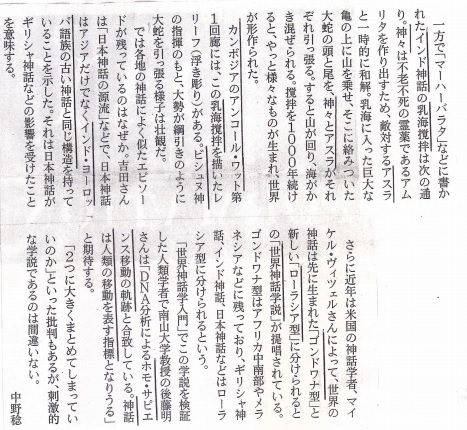 一方で「マーハーバラタ」などに書か
れたインド神話の乳海撹拌は次の通
り。神々は不老不死の霊薬であるアム
リタを作り出すため、敵対するアスラ
と一時的に和解。乳海に入った巨大な
亀の上に山を乗せ、そこに絡みついた
大蛇の頭と尾を、神々とアスラがそれ
ぞれ引っ張る。すると山が回り、海がか
き混ぜられる。撹拌を1000年続け
ると、やっと様々なものが生まれ、世界
が形作られた。
カンボジアのアンコール・ワット第
1回廊には、この乳海撹拌を描いたレ
リーフ(浮き彫り)がある。ビシュヌ神
の指揮のもと、大勢が綱引きのように
大蛇を引っ張る様子は壮観だ。
では各地の神話によく似たエピソー
ドが残っているのはなぜか。吉田さん
は「日本神話の源流」などで、日本神話
はアジアだけでなくインド・ヨーロッ
パ語族の古い神話と同じ構造を持って
いることを示した。それは日本神話が
ギリシャ神話などの影響を受けたこと
を意味する。
さらに近年は米国の神話学者、マイ
ケル・ヴィツェルさんによって、世界の
神話は先に生まれた「ゴンドワナ型」と
新しい「ローラシア型」に分けられると
の「世界神話学説」が提唱されている。
ゴンドワナ型はアフリカ中南部やメラ
ネシアなどに残っており、ギリシャ神
話、インド神話、日本神話などはローラ
シア型に分けられるという。
「世界神話学入門」でこの学説を検証
した人類学者で南山大学教授の後藤明
さんは「DNA分析によるホモ・サピエ
ンス移動の軌跡と合致している。神話
は人類の移動を表す指標となりうる」
と期待する。
「2つに大きくまとめてしまってい
いのか」といった批判もあるが、刺激的
な学説であるのは間違いない。
中野稔